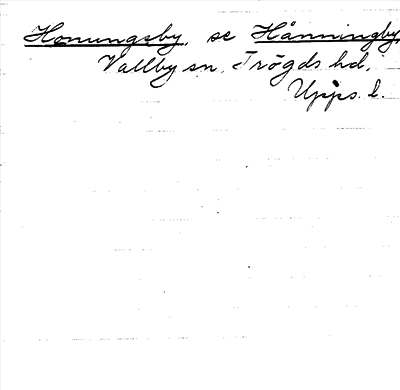 Honungsby, se Hånningby,
Vallby sn, Trögds hd,
Upps. l.